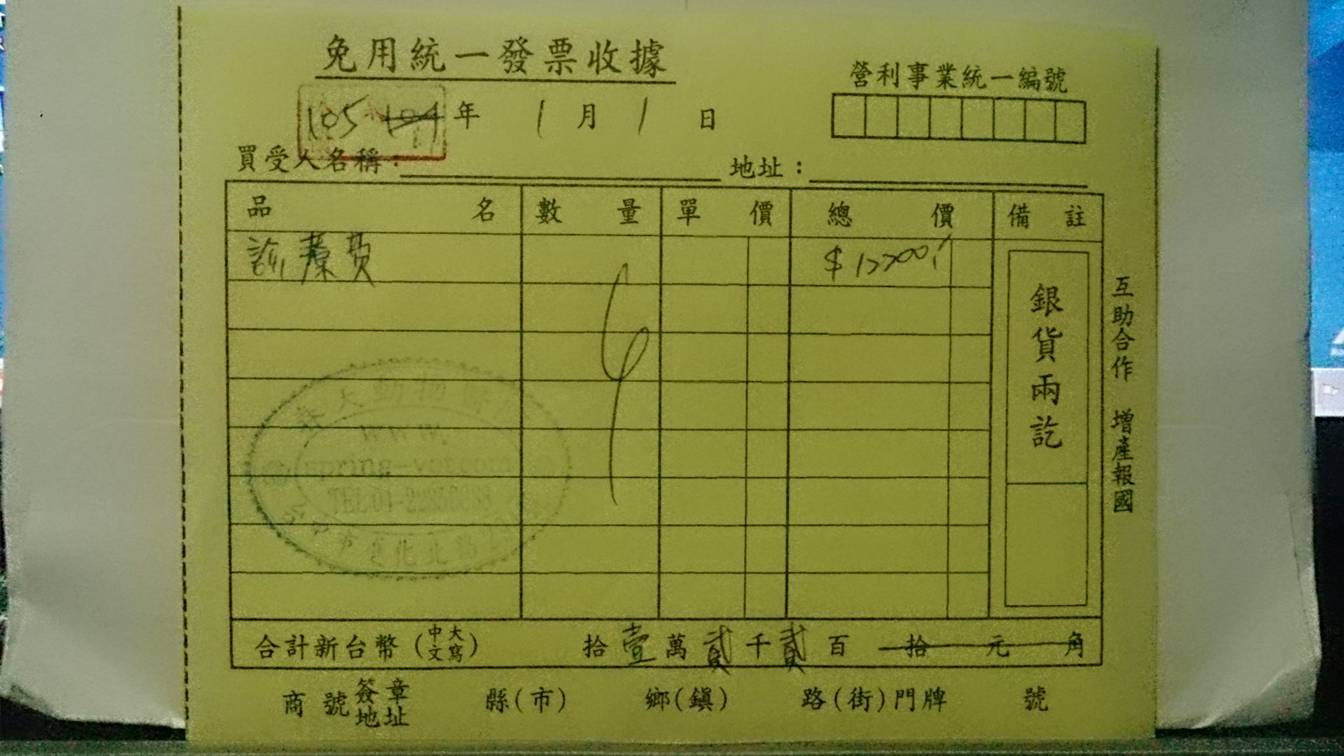 免用統一發票收據
營利事業統一編號
105 104 年 1 月 1 日
買受人名稱：
地址：
品名 數量 單價 總價 備註
診療費 $12200
銀貨兩訖
互助合作 增產報國
www.
spring-vet.com
合計新台幣(中文大寫) 拾壹萬貳千貳百拾元角
商號簽章地址 縣(市) 鄉(鎮) 路(街)門牌 號